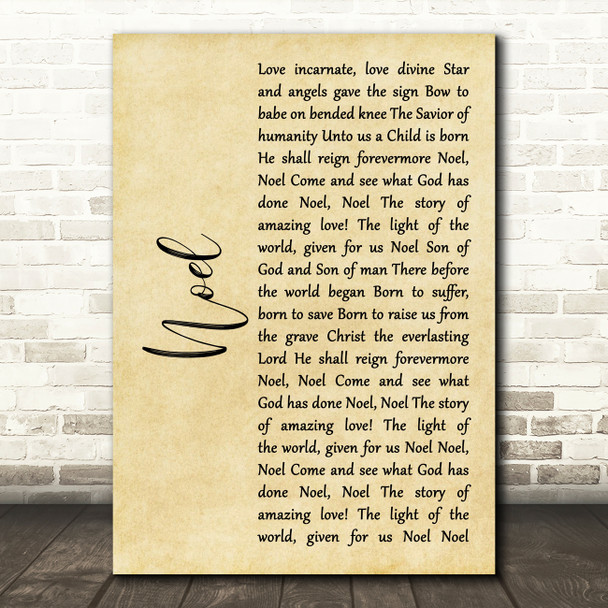 Noel
Love incarnate, love divine Star
and angels gave the sign Bow to
babe on bended knee The Savior of
humanity Unto us a Child is born
He shall reign forevermore Noel,
Noel Come and see what God has
done Noel, Noel The story of
amazing love! The light of the
world, given for us Noel Son of
God and Son of man There before
the world began Born to suffer,
born to save Born to raise us from
the grave Christ the everlasting
Lord He shall reign forevermore
Noel, Noel Come and see what
God has done Noel, Noel The story
of amazing love! The light of
the world, given for us Noel Noel,
Noel Come and see what God has
done Noel, Noel The story of
amazing love! The light of the
world, given for us Noel Noel